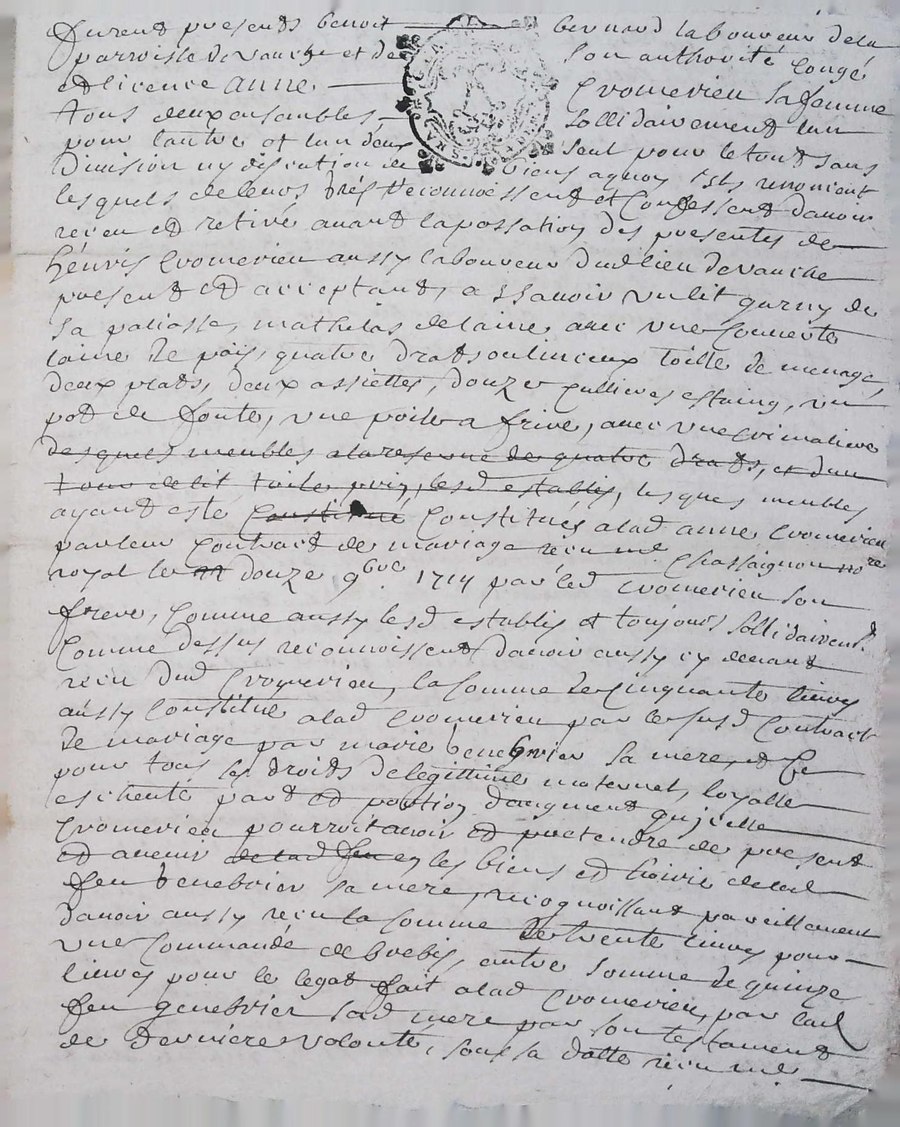 furent presents benoit bernard laboureur de la
parroisse de vauche et de son authorité congé
et licence anne cromerieu sa femme
tous deux ensembles sollidairement lun
pour lautre et lun deux seul pour le tout sans
division ny discution de biens aquoy ils renoncent
lesquels de leurs grés reconnoissent et confessent davoir
receu et retiré avant la passation des presentes de
cromerieu aussy laboureur dud lieu de vauche
present et acceptant, a ssavoir un lit garny de
sa paliasse, mathelas de laine avec une couverte
laine de pais, quatre drats toille de menage,
deux prats, deux assiettes, douze cullieres estaing, un
pot de fonte, une poile a frire, avec une crimaliere
desquels meubles a la reserve de quatre drats, et dun
tour de lit toile les d establis, lesques meubles
ayant esté constitué constitués a lad anne cromerieu
par leur contract de mariage receu me chassaignon nore
royal le douze 9bre 1714 par led cromerieu son
frere, comme aussy lesd establis et toujours sollidairemt
comme dessus reconnoissent davoir aussy cy devant
receu dud cromerieu, la somme de cinquante livres
aussy constitué a lad cromerieu par le susd contract
de mariage par marie genebrier sa mere, et ce
pour tous les droits de legittime maternel, loyalle
escheute part et portion daugment qu jcelle
cromerieu pourroit avoir et pretendre de present
et avenir de lad feu ez les biens et hoirie de lad
feu genebrier sa mere, recognoissant pareillement
davoir aussy receu la somme de trente livres pour
une commande de brebis, autre somme de quinze
livres pour le legat fait a lad cromerieu, par lad
feu genebrier sad mere par son testament
de derniere volonté, sous sa datte receu me